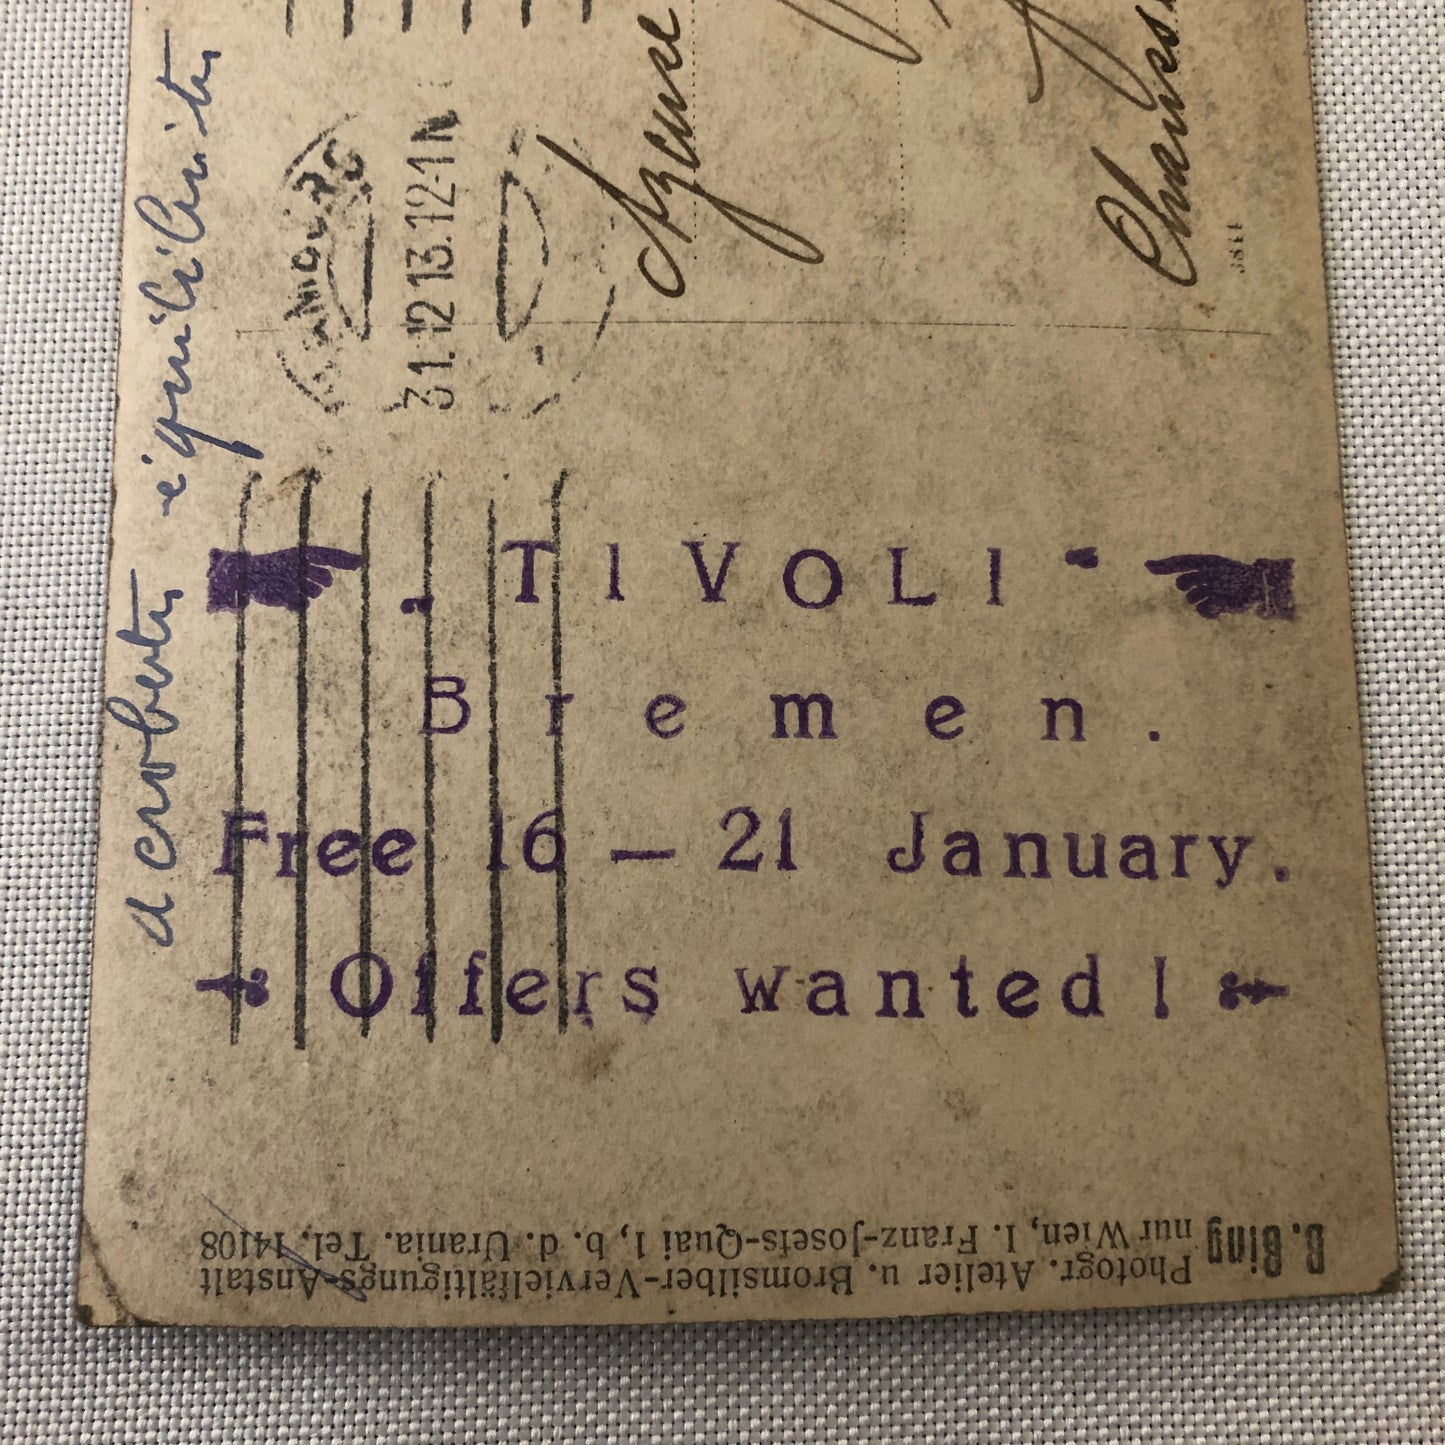 TIVOLI
Bremen.
Free 16 – 21 January.
Offers wanted!
acrobati equilibristi
31.12 13.12-1 N
3811
B. Bing
Photogr. Atelier u. Bromsilber-Vervielfältigungs-Anstalt
nur Wien, I. Franz-Josefs-Quai 1, b. d. Urania. Tel. 14108